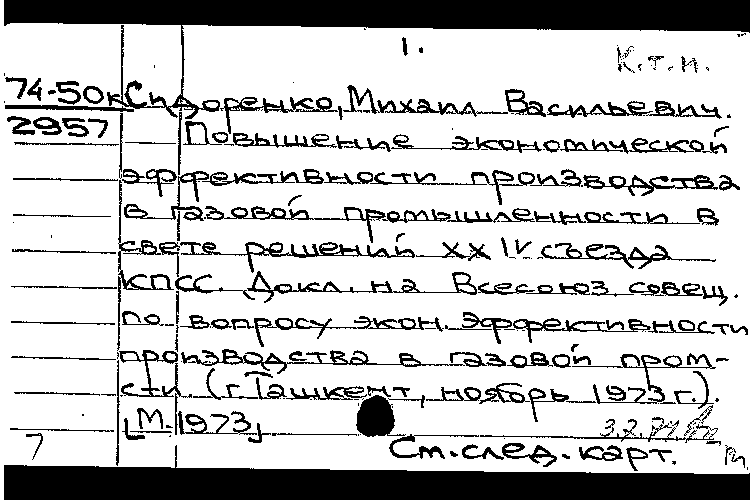 1.
К.т.н.
74-50к Сидоренко, Михаил Васильевич.
2957 Повышение экономической
эффективности производства
в газовой промышленности в
свете решений XXIV съезда
КПСС. Докл. на Всесоюз. совещ.
по вопросу экон. эффективности
производства в газовой пром-
сти. (г. Ташкент, ноябрь 1973 г.).
[М. 1973]
См. след. карт.
7